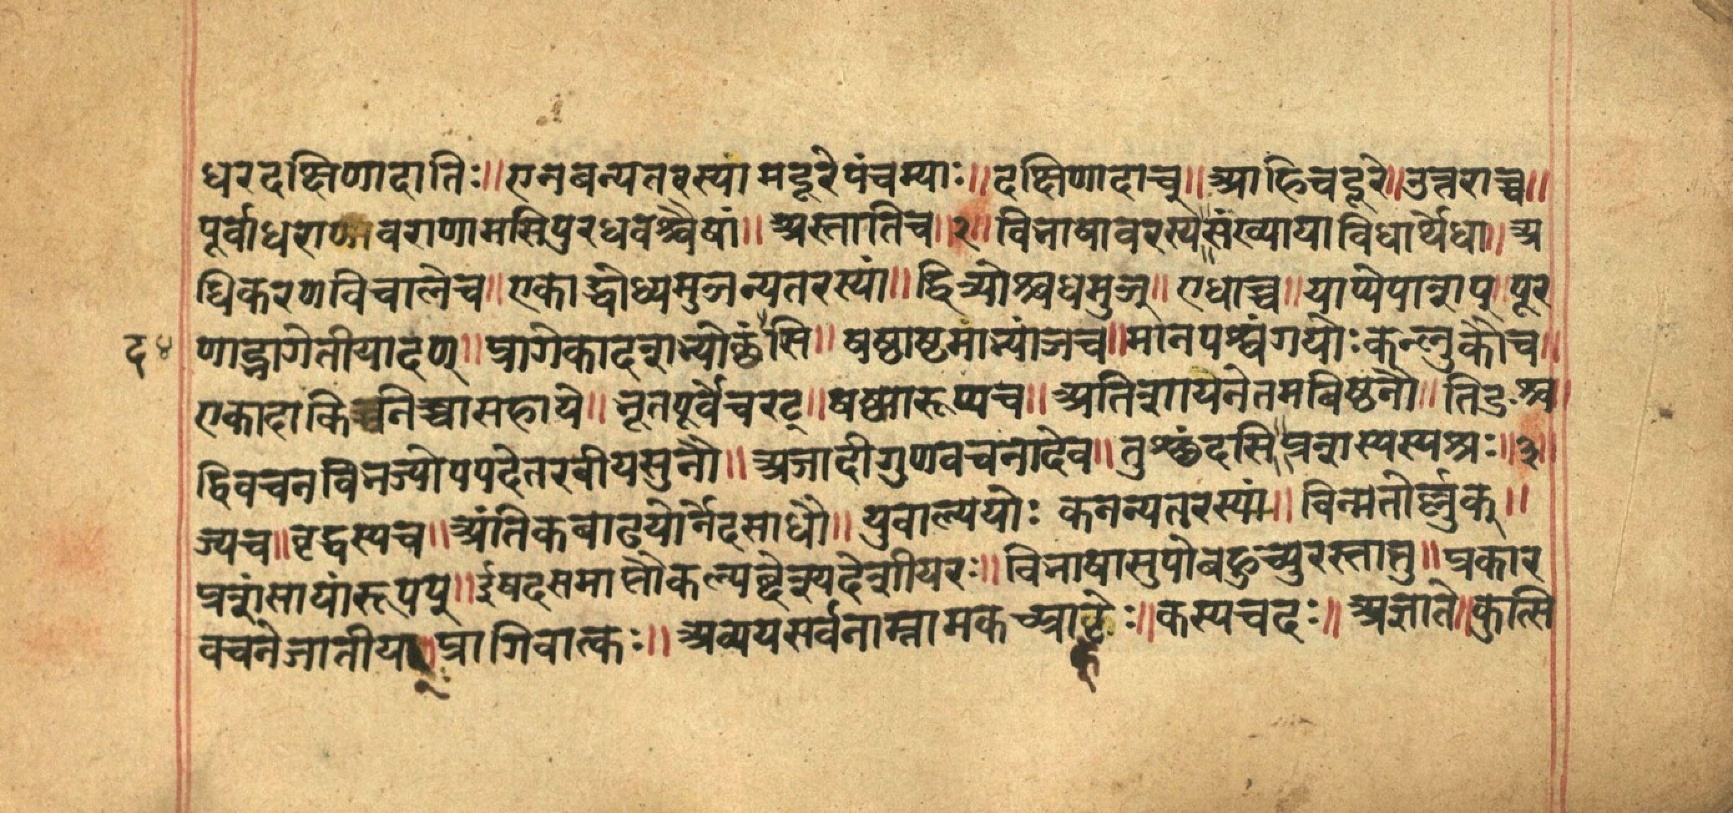 धरदक्षिणादातिः॥ एनबन्यतरस्यांमदूरेपंचम्याः॥ दक्षिणादाच्॥ आहिचदूरे॥ उत्तराच्च॥
पूर्वाधरावराणामसिपुरधवश्चैषां॥ अस्तातिच॥२॥ विभाषावरस्य॥संख्यायाविधार्थेधा॥ अ
धिकरणविचालेच॥ एकाद्धोध्यमुञन्यतरस्यां॥ द्वित्र्योश्चधमुञ्॥ एधाच्च॥ याप्येपाशप्॥पूर
द४ णाद्भागेतीयादण्॥ प्रागेकादशभ्योछंसि॥ षष्ठाष्टमाभ्यांञच॥ मानपश्वंगयोःकन्लुकौच॥
एकादाकिनिच्चासहाये॥ भूतपूर्वेचरट्॥ षष्ठ्यारूप्यच॥ अतिशायनेतमबिष्ठनौ॥ तिङश्च
द्विवचनविभज्योपपदेतरबीयसुनौ॥ अजादीगुणवचनादेव॥ तुश्छंदसि॥प्रशस्यस्यश्रः॥३॥
ज्यच॥ वृद्धस्यच॥ अंतिकबाढयोर्नेदसाधौ॥ युवाल्पयोः कनन्यतरस्यां॥ विन्मतोर्लुक्॥
प्रशंसायांरूपप्॥ ईषदसमाप्तौकल्पब्देश्यदेशीयरः॥ विभाषासुपोबहुच्पुरस्तात्तु॥ प्रकार
वचनेजातीयर्॥प्रागिवात्कः॥ अव्ययसर्वनाम्नामकच्प्राक्टेः॥ कस्यचदः॥ अज्ञाते॥कुत्सि